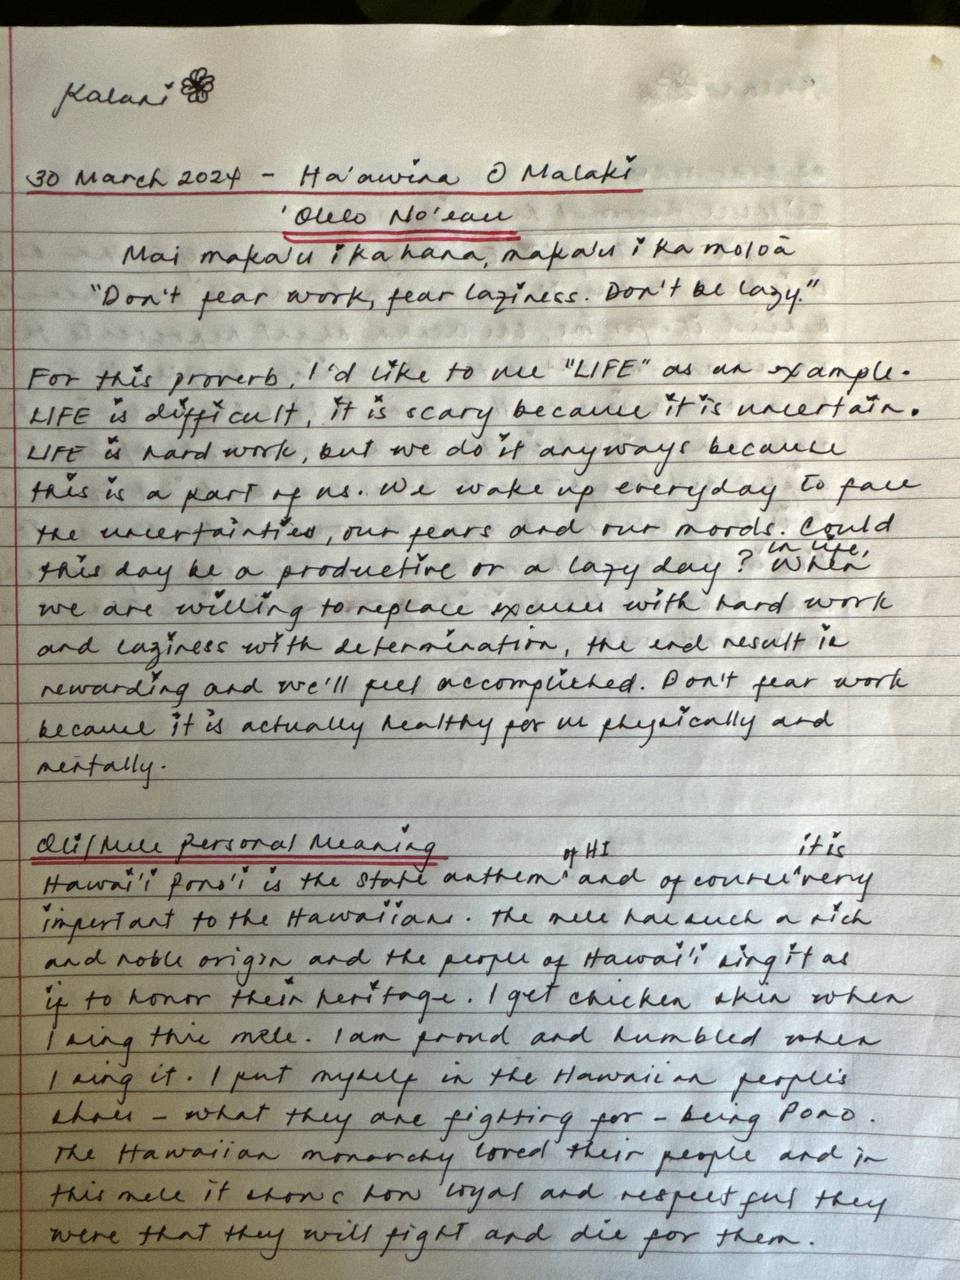 Kalani
30 March 2024 - Ha'awina O Malaki
'Olelo No'eau
Mai maka'u i ka hana, maka'u i ka moloā
"Don't fear work, fear laziness. Don't be lazy."
For this proverb, I'd like to use "LIFE" as an example.
LIFE is difficult, it is scary because it is uncertain.
LIFE is hard work, but we do it anyways because
this is a part of us. We wake up everyday to face
the uncertainties, our fears and our moods. Could
this day be a productive or a lazy day? in life, when
we are willing to replace excuses with hard work
and laziness with determination, the end result is
rewarding and we'll feel accomplished. Don't fear work
because it is actually healthy for us physically and
mentally.
Oli/Mele Personal Meaning
Hawai'i Pono'i is the State anthem of HI and of course it is very
important to the Hawaiians. The mele has such a rich
and noble origin and the people of Hawai'i sing it as
if to honor their heritage. I get chicken skin when
I sing this mele. I am proud and humbled when
I sing it. I put myself in the Hawaiian people's
shoes - what they are fighting for - being Pono.
The Hawaiian monarchy loved their people and in
this mele it shows how loyal and respectful they
were that they will fight and die for them.